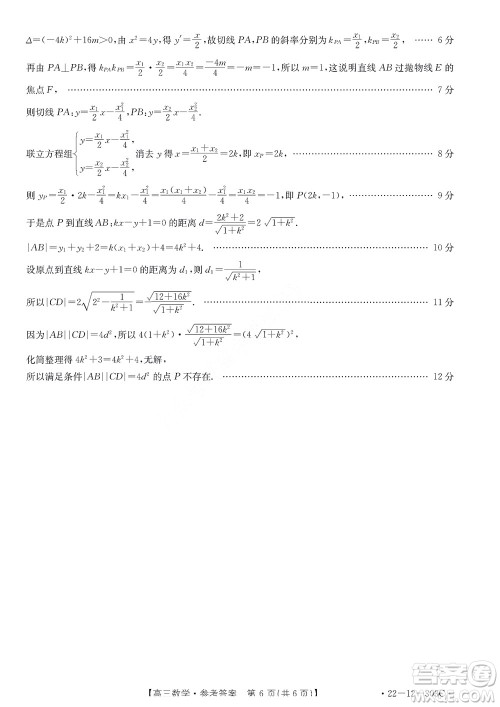 Δ=(-4k)²+16m>0,由 x²=4y,得 y′=x/2,故切线 PA,PB 的斜率分别为 k_PA=x₁/2,k_PB=x₂/2, …… 6 分
再由 PA⊥PB,得 k_PA k_PB=x₁/2·x₂/2=x₁x₂/4=-4m/4=-1,所以 m=1,这说明直线 AB 过抛物线 E 的
焦点 F, …… 7 分
则切线 PA:y=x₁/2 x-x₁²/4,
联立方程组{y=x₁/2 x-x₁²/4, y=x₂/2 x-x₂²/4, 消去 y 得 x=(x₁+x₂)/2=2k,则 x_P=2k, …… 8 分
则 y_P=x₁/2·2k-x₁²/4=kx₁-x₁(x₁+x₂)/4+x₁x₂/4=-1,即 P(2k,-1), …… 9 分
于是点 P 到直线 kx-y+1=0 的距离 d=|2k²+2|/√(k²+1)=2√(1+k²).
|AB|=y₁+y₂+2=k(x₁+x₂)+4=4k²+4. …… 10 分
设原点到直线 kx-y+1=0 的距离为 d₁,则 d₁=1/√(k²+1),
所以|CD|=2√(2²-1/(k²+1))=√(12+16k²)/√(1+k²). …… 11 分
因为|AB||CD|=4d²,所以 4(1+k²)·√(12+16k²)/√(1+k²)=4(2√(1+k²))²,
化简整理得 4k²+3=4k²+4,无解,
所以满足条件|AB||CD|=4d² 的点 P 不存在. …… 12 分
【高三数学·参考答案 第 6 页(共 6 页)】